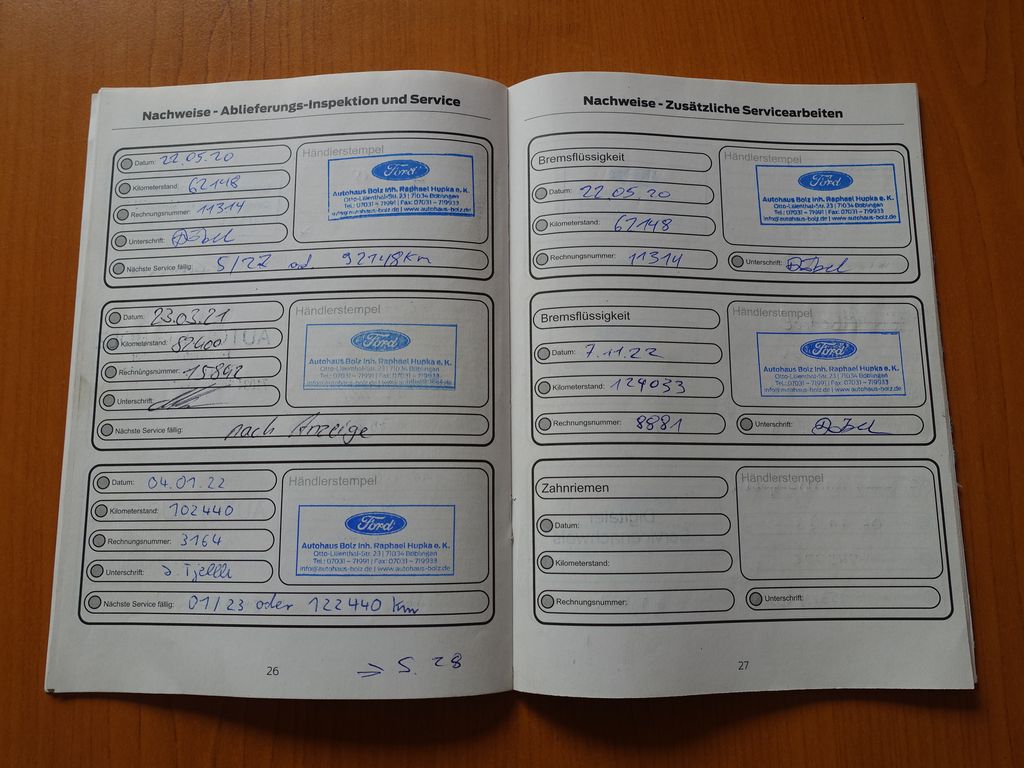 Nachweise - Ablieferungs-Inspektion und Service
Datum: 22.05.20
Kilometerstand: 62148
Rechnungsnummer: 11314
Unterschrift:
Nächste Service fällig: 5/22 od. 92148 km
Händlerstempel
Ford
Autohaus Bolz Inh. Raphael Hupka e. K.
Otto-Lilienthal-Str. 23 | 71034 Böblingen
Tel.: 07031 - 71991 | Fax: 07031 - 719933
info@autohaus-bolz.de | www.autohaus-bolz.de
Datum: 23.03.21
Kilometerstand: 82400
Rechnungsnummer: 15892
Unterschrift:
Nächste Service fällig: nach Anzeige
Händlerstempel
Ford
Autohaus Bolz Inh. Raphael Hupka e. K.
Otto-Lilienthal-Str. 23 | 71034 Böblingen
Tel.: 07031 - 71991 | Fax: 07031 - 719933
info@autohaus-bolz.de | www.autohaus-bolz.de
Datum: 04.01.22
Kilometerstand: 102440
Rechnungsnummer: 3164
Unterschrift:
Nächste Service fällig: 01/23 oder 122440 km
Händlerstempel
Ford
Autohaus Bolz Inh. Raphael Hupka e. K.
Otto-Lilienthal-Str. 23 | 71034 Böblingen
Tel.: 07031 - 71991 | Fax: 07031 - 719933
info@autohaus-bolz.de | www.autohaus-bolz.de
26
=> S. 28
Nachweise - Zusätzliche Servicearbeiten
Bremsflüssigkeit
Datum: 22.05.20
Kilometerstand: 62148
Rechnungsnummer: 11314
Händlerstempel
Ford
Autohaus Bolz Inh. Raphael Hupka e. K.
Otto-Lilienthal-Str. 23 | 71034 Böblingen
Tel.: 07031 - 71991 | Fax: 07031 - 719933
info@autohaus-bolz.de | www.autohaus-bolz.de
Unterschrift:
Bremsflüssigkeit
Datum: 7.11.22
Kilometerstand: 124033
Rechnungsnummer: 8881
Händlerstempel
Ford
Autohaus Bolz Inh. Raphael Hupka e. K.
Otto-Lilienthal-Str. 23 | 71034 Böblingen
Tel.: 07031 - 71991 | Fax: 07031 - 719933
info@autohaus-bolz.de | www.autohaus-bolz.de
Unterschrift:
Zahnriemen
Datum:
Kilometerstand:
Rechnungsnummer:
Händlerstempel
Unterschrift:
27